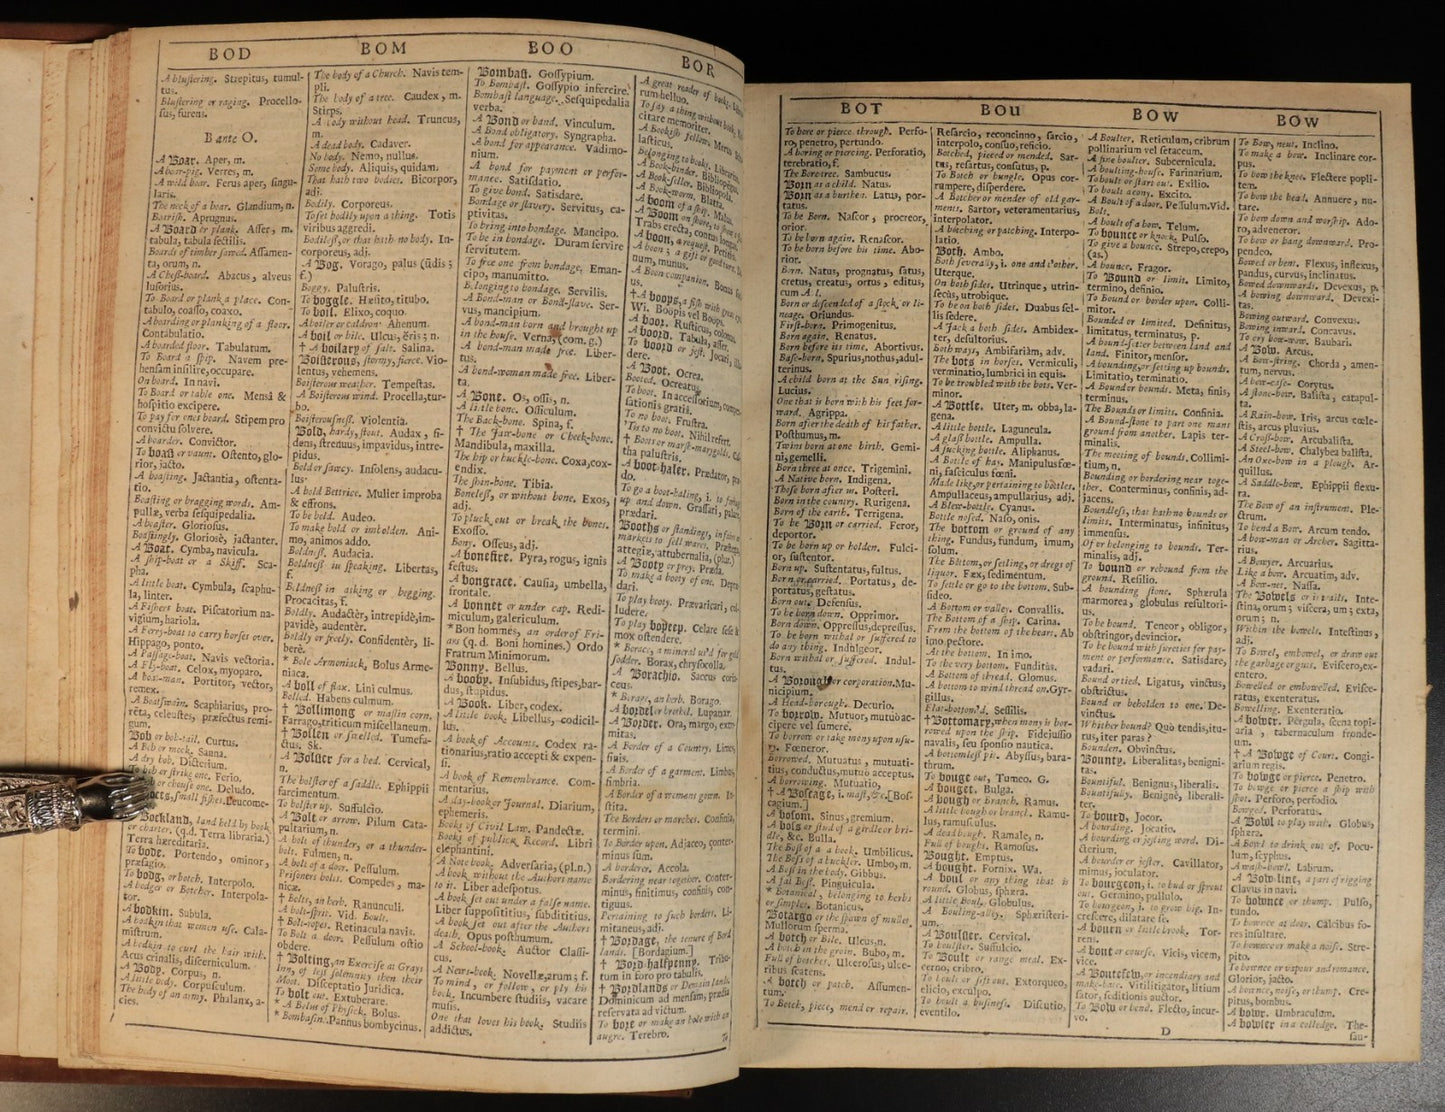 BOD
A blustering. Strepitus, tumul-
tus.
Blustering or raging. Procello-
sus, furens.
B ante O.
A Boar. Aper, m.
A boar-pig. Verres, m.
A wild boar. Ferus aper, singu-
laris.
The neck of a boar. Glandium, n.
Boarish. Aprugnus.
A Board or plank. Asser, m.
tabula, tabula sectilis.
Boards of timber sawed. Assamen-
ta, orum, n.
A Chess-board. Abacus, alveus
lusorius.
To Board or plank a place. Con-
tabulo, coasso, coaxo.
A boarding or planking of a floor.
Contabulatio.
A boarded floor. Tabulatum.
To Board a ship. Navem pre-
hensam insilire, occupare.
On board. In navi.
To Board or table one. Mensâ &
hospitio excipere.
To pay for ones board. Stipem pro
convictu solvere.
A boarder. Convictor.
To boast or vaunt. Ostento, glo-
rior, jacto.
A boasting. Jactantia, ostenta-
tio.
Boasting or bragging words. Am-
pullæ, verba sesquipedalia.
A boaster. Gloriosus.
Boastingly. Gloriosè, jactanter.
A Boat. Cymba, navicula.
A ship-boat or a Skiff. Sca-
pha.
A little boat. Cymbula, scaphu-
la, linter.
A Fishers boat. Piscatorium na-
vigium, hariola.
A Ferry-boat to carry horses over.
Hippago, ponto.
A Passage-boat. Navis vectoria.
A Fly-boat. Celox, myoparo.
A boat-man. Portitor, vector,
remex.
A Boatswain. Scaphiarius, pro-
rêta, celeustes, præfectus remi-
gum.
Bob or bob-tail. Curtus.
A Bob or mock. Sanna.
A dry bob. Dicterium.
To bob or strike one. Ferio.
or choose one. Deludo.
small fishes. Leucome-
Bockland, land held by book
or charter. (q.d. Terra libraria.)
Terra hæreditaria.
To bode. Portendo, ominor,
præsagio.
To bodg, or botch. Interpolo.
A bodger or Botcher. Interpola-
tor.
A bodkin. Subula.
A bodkin that women use. Cala-
mistrum.
A bodkin to curl the hair with.
Acus crinalis, discerniculum.
A Body. Corpus, n.
A little body. Corpusculum.
The body of an army. Phalanx, a-
cies.
BOM
The body of a Church. Navis tem-
pli.
The body of a tree. Caudex, m.
Stirps.
A body without head. Truncus,
m.
A dead body. Cadaver.
No body. Nemo, nullus.
Some body. Aliquis, quidam.
That hath two bodies. Bicorpor,
adj.
Bodily. Corporeus.
To set bodily upon a thing. Totis
viribus aggredi.
Bodiless, or that hath no body. In-
corporeus, adj.
A Bog. Vorago, palus (ûdis ;
f.)
Boggy. Palustris.
To boggle. Hæsito, titubo.
To boil. Elixo, coquo.
A boiler or caldron. Ahenum.
A boil or bile. Ulcus, ĕris ; n.
† A boilary of salt. Salina.
Boisterous, stormy, fierce. Vio-
lentus, vehemens.
Boisterous weather. Tempestas.
A Boisterous wind. Procella, tur-
bo.
Boisterousness. Violentia.
Bold, hardy, stout. Audax, fi-
dens, strenuus, impavidus, intre-
pidus.
Bold or sawcy. Insolens, audacu-
lus.
A bold Bettrice. Mulier improba
& effrons.
To be bold. Audeo.
To make bold or imbolden. Ani-
mo, animos addo.
Boldness. Audacia.
Boldness in speaking. Libertas,
f.
Boldness in asking or begging.
Procacitas, f.
Boldly. Audactèr, intrepidè, im-
pavidè, audentèr.
Boldly or freely. Confidentèr, li-
berè.
* Bole Armoniack, Bolus Arme-
niaca.
A boll of flax. Lini culmus.
Bolled. Habens culmum.
† Bollimong or maslin corn.
Farrago, triticum miscellaneum.
† Bollen or swelled. Tumefa-
ctus. Sk.
A Bolster for a bed. Cervical,
n.
The bolster of a saddle. Ephippii
farcimentum.
To bolster up. Suffulcio.
A Bolt or arrow. Pilum Cata-
pultarium, n.
A bolt of thunder, or a thunder-
bolt. Fulmen, n.
A bolt of a door. Pessulum.
Prisoners bolts. Compedes, ma-
nicæ.
† Bolts, an herb. Ranunculi.
A bolt-sprit. Vid. Boult.
† Bolt-ropes. Retinacula navis.
To Bolt a door. Pessulum ostio
obdere.
† Bolting, an Exercise at Grays
Inn, of less solemnity then their
Moot. Disceptatio Juridica.
To bolt out. Extuberare.
* A Bolus of Physick. Bolus.
* Bombasin. Pannus bombycinus.
BOO
Bombast. Gossypium.
To Bombast. Gossypio infercire.
Bombast language. Sesquipedalia
verba.
A Bond or band. Vinculum.
A Bond obligatory. Syngrapha.
A bond for appearance. Vadimo-
nium.
A bond for payment or perfor-
mance. Satisdatio.
To give bond. Satisdare.
Bondage or slavery. Servitus, ca-
ptivitas.
To bring into bondage. Mancipo.
To be in bondage. Duram servire
servitutem.
To free one from bondage. Eman-
cipo, manumitto.
Belonging to bondage. Servilis.
A Bond-man or Bond-slave. Ser-
vus, mancipium.
A bond-man born and brought up
in the house. Verna, (com. g.)
A bond-man made free. Liber-
tus.
A bond-woman made free. Liber-
ta.
A Bone. Os, ossis, n.
A little bone. Ossiculum.
The Back-bone. Spina, f.
† The Jaw-bone or Cheek-bone.
Mandibula, maxilla.
The hip or huckle-bone. Coxa, cox-
endix.
The shin-bone. Tibia.
Boneless, or without bone. Exos,
adj.
To pluck out or break the bones.
Exosso.
Bony. Osseus, adj.
A bonefire. Pyra, rogus, ignis
festus.
A bongrace. Causia, umbella,
frontale.
A bonnet or under cap. Redi-
miculum, galericulum.
* Bon hommes, an order of Fri-
ars (q. d. Boni homines.) Ordo
Fratrum Minimorum.
Bonny. Bellus.
A booby. Insubidus, stipes, bar-
dus, stupidus.
A Book. Liber, codex.
A little book. Libellus, codicil-
lus.
A book of Accounts. Codex ra-
tionarius, ratio accepti & expen-
si.
A book of Remembrance. Com-
mentarius.
A day-book or Journal. Diarium,
ephemeris.
Books of Civil Law. Pandectæ.
Books of publick Record. Libri
elephantini.
A Note book. Adversaria, (pl. n.)
A book without the Authors name
to it. Liber adespotus.
A book set out under a false name.
Liber supposititius, subdititius.
A book set out after the Authors
death. Opus posthumum.
A School-book. Auctor Classi-
cus.
A News-book. Novellæ, arum ; f.
To mind, or follow, or ply his
book. Incumbere studiis, vacare
musis.
One that loves his book. Studiis
addictus.
BOR
A great reader of books.
rum helluo.
To say a thing without book.
citare memoriter.
A Bookish fellow.
lasticus.
belonging to books.
A Book-binder. Bibliopegus.
A Book-seller. Bibliopola.
A Book-worm. Blatta.
A boom of a ship. Malus.
A Boom
Trabs erecta,
A boon, a request. Petitio.
A boon ; a gift or good turn.
num, munus.
A Boon companion. Bonus
us.
† A boops, a fish with great eyes.
Wi. Boopis vel Boops.
A boor. Rusticus, colonus.
A boord. Tabula, asser.
To boord or jest. Jocari,
dere.
A Boot. Ocrea.
Booted. Ocreatus.
To boot. In accessorium,
sationis gratiâ.
To no boot. Frustra.
'Tis to no boot. Nihil refert.
† Boots or marsh-marygolds.
tha palustris.
A boot-haler. Prædator,
do.
To go a boot-haling,
up and down. Grassari,
prædari.
Booths or standings, in fairs or
markets to sell wares.
attegiæ, attubernalia, (plur.)
A Booty or prey. Præda.
To make a booty of one. Depra-
dari.
To play booty. Prævaricari, col-
ludere.
To play bopeep. Celare sese &
mox ostendere.
* Borace, a mineral us'd for gold
sodder. Borax, chrysocolla.
A Borachio. Saccus coria-
ceus.
* Borage, an herb. Borago.
A bordel or brothel. Lupanar.
A Border. Ora, margo, extre-
mitas.
A Border of a Country. Limes,
finis.
A Border of a garment. Limbus,
fimbria.
A Border of a womans gown. In-
stita.
The Borders or marches. Confinia,
termini.
To Border upon. Adjaceo, conter-
minus sum.
A borderer. Accola.
Bordering near together. Conter-
minus, finitimus, confinis, con-
tiguus.
Pertaining to such borders. Li-
mitaneus, adj.
† Bordage, the tenure of Bord
lands. [Bordagium.]
† Bord-halfpenny. Tribu-
tum in foro pro tabulis.
† Bordlands or Demain lands.
Dominicum ad mensam, præsia
reservata ad victum.
To bore or make an hole with an
augre. Terebro.
To
BOT
To bore or pierce through. Perfo-
ro, penetro, pertundo.
A boring or piercing. Perforatio,
terebratio, f.
The Bore-tree. Sambucus.
Born as a child. Natus.
Born as a burthen. Latus, por-
tatus.
To be Born. Nascor, procreor,
orior.
To be born again. Renascor.
To be born before his time. Abo-
rior.
Born. Natus, prognatus, satus,
cretus, creatus, ortus, editus,
cum Al.
Born or descended of a stock, or li-
neage. Oriundus.
First-born. Primogenitus.
Born again. Renatus.
Born before its time. Abortivus.
Base-born. Spurius, nothus, adul-
terinus.
A child born at the Sun rising.
Lucius.
One that is born with his feet for-
ward. Agrippa.
Born after the death of his father.
Posthumus, m.
Twins born at one birth. Gemi-
ni, gemelli.
Born three at once. Trigemini.
A Native born. Indigena.
Those born after us. Posteri.
Born in the country. Rurigena.
Born of the earth. Terrigena.
To be Born or carried. Feror,
deportor.
To be born up or holden. Fulci-
or, sustentor.
Born up. Sustentatus, fultus.
Born or carried. Portatus, de-
portatus, gestatus.
Born out. Defensus.
To be born down. Opprimor.
Born down. Oppressus, depressus.
To be born withal or suffered to
do any thing. Indulgeor.
Born withal or suffered. Indul-
tus.
A Borough or corporation. Mu-
nicipium.
A Head-borough. Decurio.
To borrow. Mutuor, mutuò ac-
cipere vel sumere.
To borrow or take mony upon usu-
ry. Fœneror.
Borrowed. Mutuatus, mutuati-
tius, conductus, mutuò acceptus.
A borrowing. Mutuatio.
† A Boscage, i. mast, &c. [Bos-
cagium.]
A bosom. Sinus, gremium.
A boss or stud of a girdle or bri-
dle, &c. Bulla.
The Boss of a book. Umbilicus.
The Boss of a buckler. Umbo, m.
A Boss in the body. Gibbus.
A fat Boss. Pinguicula.
* Botanical, belonging to herbs
or simples. Botanicus.
Botargo or the spawn of mullet.
Mullorum sperma.
A botch or Bile. Ulcus, n.
A botch in the groin. Bubo, m.
Full of botches. Ulcerosus, ulce-
ribus scatens.
A botch or patch. Assumen-
tum.
To Botch, piece, mend or repair.
BOU
Resarcio, reconcinno, sarcio,
interpolo, consuo, reficio.
Botched, pieced or mended. Sar-
tus, resartus, consutus, p.
To Botch or bungle. Opus cor-
rumpere, disperdere.
A Botcher or mender of old gar-
ments. Sartor, veteramentarius,
interpolator.
A botching or patching. Interpo-
latio.
Both. Ambo.
Both severally, i. one and t'other.
Uterque.
On both sides. Utrinque, utrin-
secus, utrobique.
To be on both sides. Duabus sel-
lis sedere.
A Jack a both sides. Ambidex-
ter, desultorius.
Both ways, Ambifariàm, adv.
The bots in horses. Vermiculi,
verminatio, lumbrici in equis.
To be troubled with the bots. Ver-
minor.
A Bottle. Uter, m. obba, la-
gena.
A little bottle. Laguncula.
A glass bottle. Ampulla.
A sucking bottle. Aliphanus.
A Bottle of hay. Manipulus fœ-
ni, fasciculus fœni.
Made like, or pertaining to bottles.
Ampullaceus, ampullarius, adj.
A Blew-bottle. Cyanus.
Bottle nosed. Naso, onis.
The bottom or ground of any
thing. Fundus, fundum, imum,
solum.
The Bottom, or setling, or dregs of
liquor. Fæx, sedimentum.
To settle or go to the bottom. Sub-
sideo.
A Bottom or valley. Convallis.
The Bottom of a ship. Carina.
From the bottom of the heart. Ab
imo pectore.
At the bottom. In imo.
To the very bottom. Funditùs.
A Bottom of thread. Glomus.
A bottom to wind thread on. Gyr-
gillus.
Flat-bottom'd. Sessilis.
† Bottomary, when mony is bor-
rowed upon the ship. Fidejussio
navalis, seu sponsio nautica.
A bottomless pit. Abyssus, bara-
thrum.
To bouge out, Tumeo. G.
A bouget. Bulga.
A bough or Branch. Ramus.
A little bough or branch. Ramu-
lus, ramusculus.
A dead bough. Ramale, n.
Full of boughs. Ramosus.
Bought. Emptus.
A bought. Fornix. Wa.
A boul or any thing that is
round. Globus, sphæra.
A little Boul. Globulus.
A Bouling-alley. Sphæristeri-
um.
A Boulster. Cervical.
To boulster. Suffulcio.
To Boult or range meal. Ex-
cerno, cribro.
To boult or sift out. Extorqueo,
elicio, exculpo.
To boult a business. Discutio,
eventilo.
BOW
A Boulter. Reticulum, cribrum
pollinarium vel setaceum.
A fine boulter. Subcernicula.
A boulting-house. Farinarium.
To boult or start out. Exilio.
To boult a cony. Excito.
A Boult of a door. Pessulum. Vid.
Bolt.
A boult of a bow. Telum.
To bounce or knock. Pulso.
To give a bounce. Strepo, crepo,
(as.)
A bounce. Fragor.
To Bound or limit. Limito,
termino, definio.
To Bound or border upon. Colli-
mitor.
Bounded or limited. Definitus,
limitatus, terminatus, p.
A bound-setter between land and
land. Finitor, mensor.
A bounding, or setting up bounds.
Limitatio, terminatio.
A Bound or bounds. Meta, finis,
terminus.
The Bounds or limits. Confinia.
A Bound-stone to part one mans
ground from another. Lapis ter-
minalis.
The meeting of bounds. Collimi-
tium, n.
Bounding or bordering near toge-
ther. Conterminus, confinis, ad-
jacens.
Boundless, that hath no bounds or
limits. Interminatus, infinitus,
immensus.
Of or belonging to bounds. Ter-
minalis, adj.
To bound or rebound from the
ground. Resilio.
A bounding stone. Sphærula
marmorea, globulus resultori-
us.
To be bound. Teneor, obligor,
obstringor, devincior.
To be bound with sureties for pay-
ment or performance. Satisdare,
vadari.
Bound or tied. Ligatus, vinctus,
obstrictus.
Bound or beholden to one. De-
vinctus.
Whither bound? Quò tendis, itu-
rus, iter paras?
Bounden. Obvinctus.
Bounty. Liberalitas, benigni-
tas.
Bountiful. Benignus, liberalis.
Bountifully. Benignè, liberali-
ter.
To bourd, Jocor.
A bourding. Jocatio.
A bourding or jesting word. Di-
cterium.
A bourder or jester. Cavillator,
mimus, joculator.
To bourgeon, i. to bud or sprout
out. Germino, pullulo.
To bourgeon, i. to grow big. In-
crescere, dilatare se.
A bourn or little brook. Tor-
rens.
A bout or course. Vicis, vicem,
vice.
A Boutefeu, or incendiary and
make-bate. Vitilitigator, litium
sator, seditionis auctor.
To Bow or bend. Flecto, incur-
vo.
D
BOW
To Bow, neut. Inclino.
To make a bow. Inclinare cor-
pus.
To bow the knee. Flectere popli-
tem.
To bow the head. Annuere, nu-
tare.
To bow down and worship. Ado-
ro, adveneror.
To bow or hang downward. Pro-
pendeo.
Bowed or bent. Flexus, inflexus,
pandus, curvus, inclinatus.
Bowed downwards. Devexus, p.
A bowing downward. Devexi-
tas.
Bowing outward. Convexus.
Bowing inward. Concavus.
To cry bow-wow. Baubari.
A Bow. Arcus.
A Bow-string. Chorda, amen-
tum, nervus.
A bow-case. Corytus.
A stone-bow. Balista, catapul-
ta.
A Rain-bow. Iris, arcus cœle-
stis, arcus pluvius.
A Cross-bow. Arcubalista.
A Steel-bow. Chalybea balista.
An Oxe-bow in a plough. Ar-
quillus.
A Saddle-bow. Ephippii flexu-
ra.
The Bow of an instrument. Ple-
ctrum.
To bend a Bow. Arcum tendo.
A bow-man or Archer. Sagitta-
rius.
A Bowyer. Arcuarius.
Like a bow. Arcuatim, adv.
A bow-net. Nassa.
The Bowels or entrails. Inte-
stina, orum ; viscera, um ; exta,
orum ; n.
Within the bowels. Intestinus,
adj.
To Bowel, embowel, or draw out
the garbage or guts. Eviscero, ex-
entero.
Bowelled or embowelled. Evisce-
ratus, exenteratus.
Bowelling. Exenteratio.
A bower. Pergula, scena topi-
aria, tabernaculum fronde-
um.
† A Bowge of Court. Congi-
arium regis.
To bowge or pierce. Penetro.
To bowge or pierce a ship with
shot. Perforo, perfodio.
Bowged. Perforatus.
A Bowl to play with. Globus,
sphæra.
A Bowl to drink out of. Pocu-
lum, scyphus.
A wash-bowl. Labrum.
A Bow-line, a part of rigging
Clavus in navi.
To bownce or thump. Pulso,
tundo.
To bownce at door. Calcibus fo-
res insultare.
To bownce or make a noise. Stre-
pito.
To bownce or vapour and romance.
Glorior, jacto.
A bownce, noise, or thump. Cre-
pitus, bombus.
A bowre. Umbraculum.
A bowser in a colledge. The-
sau-